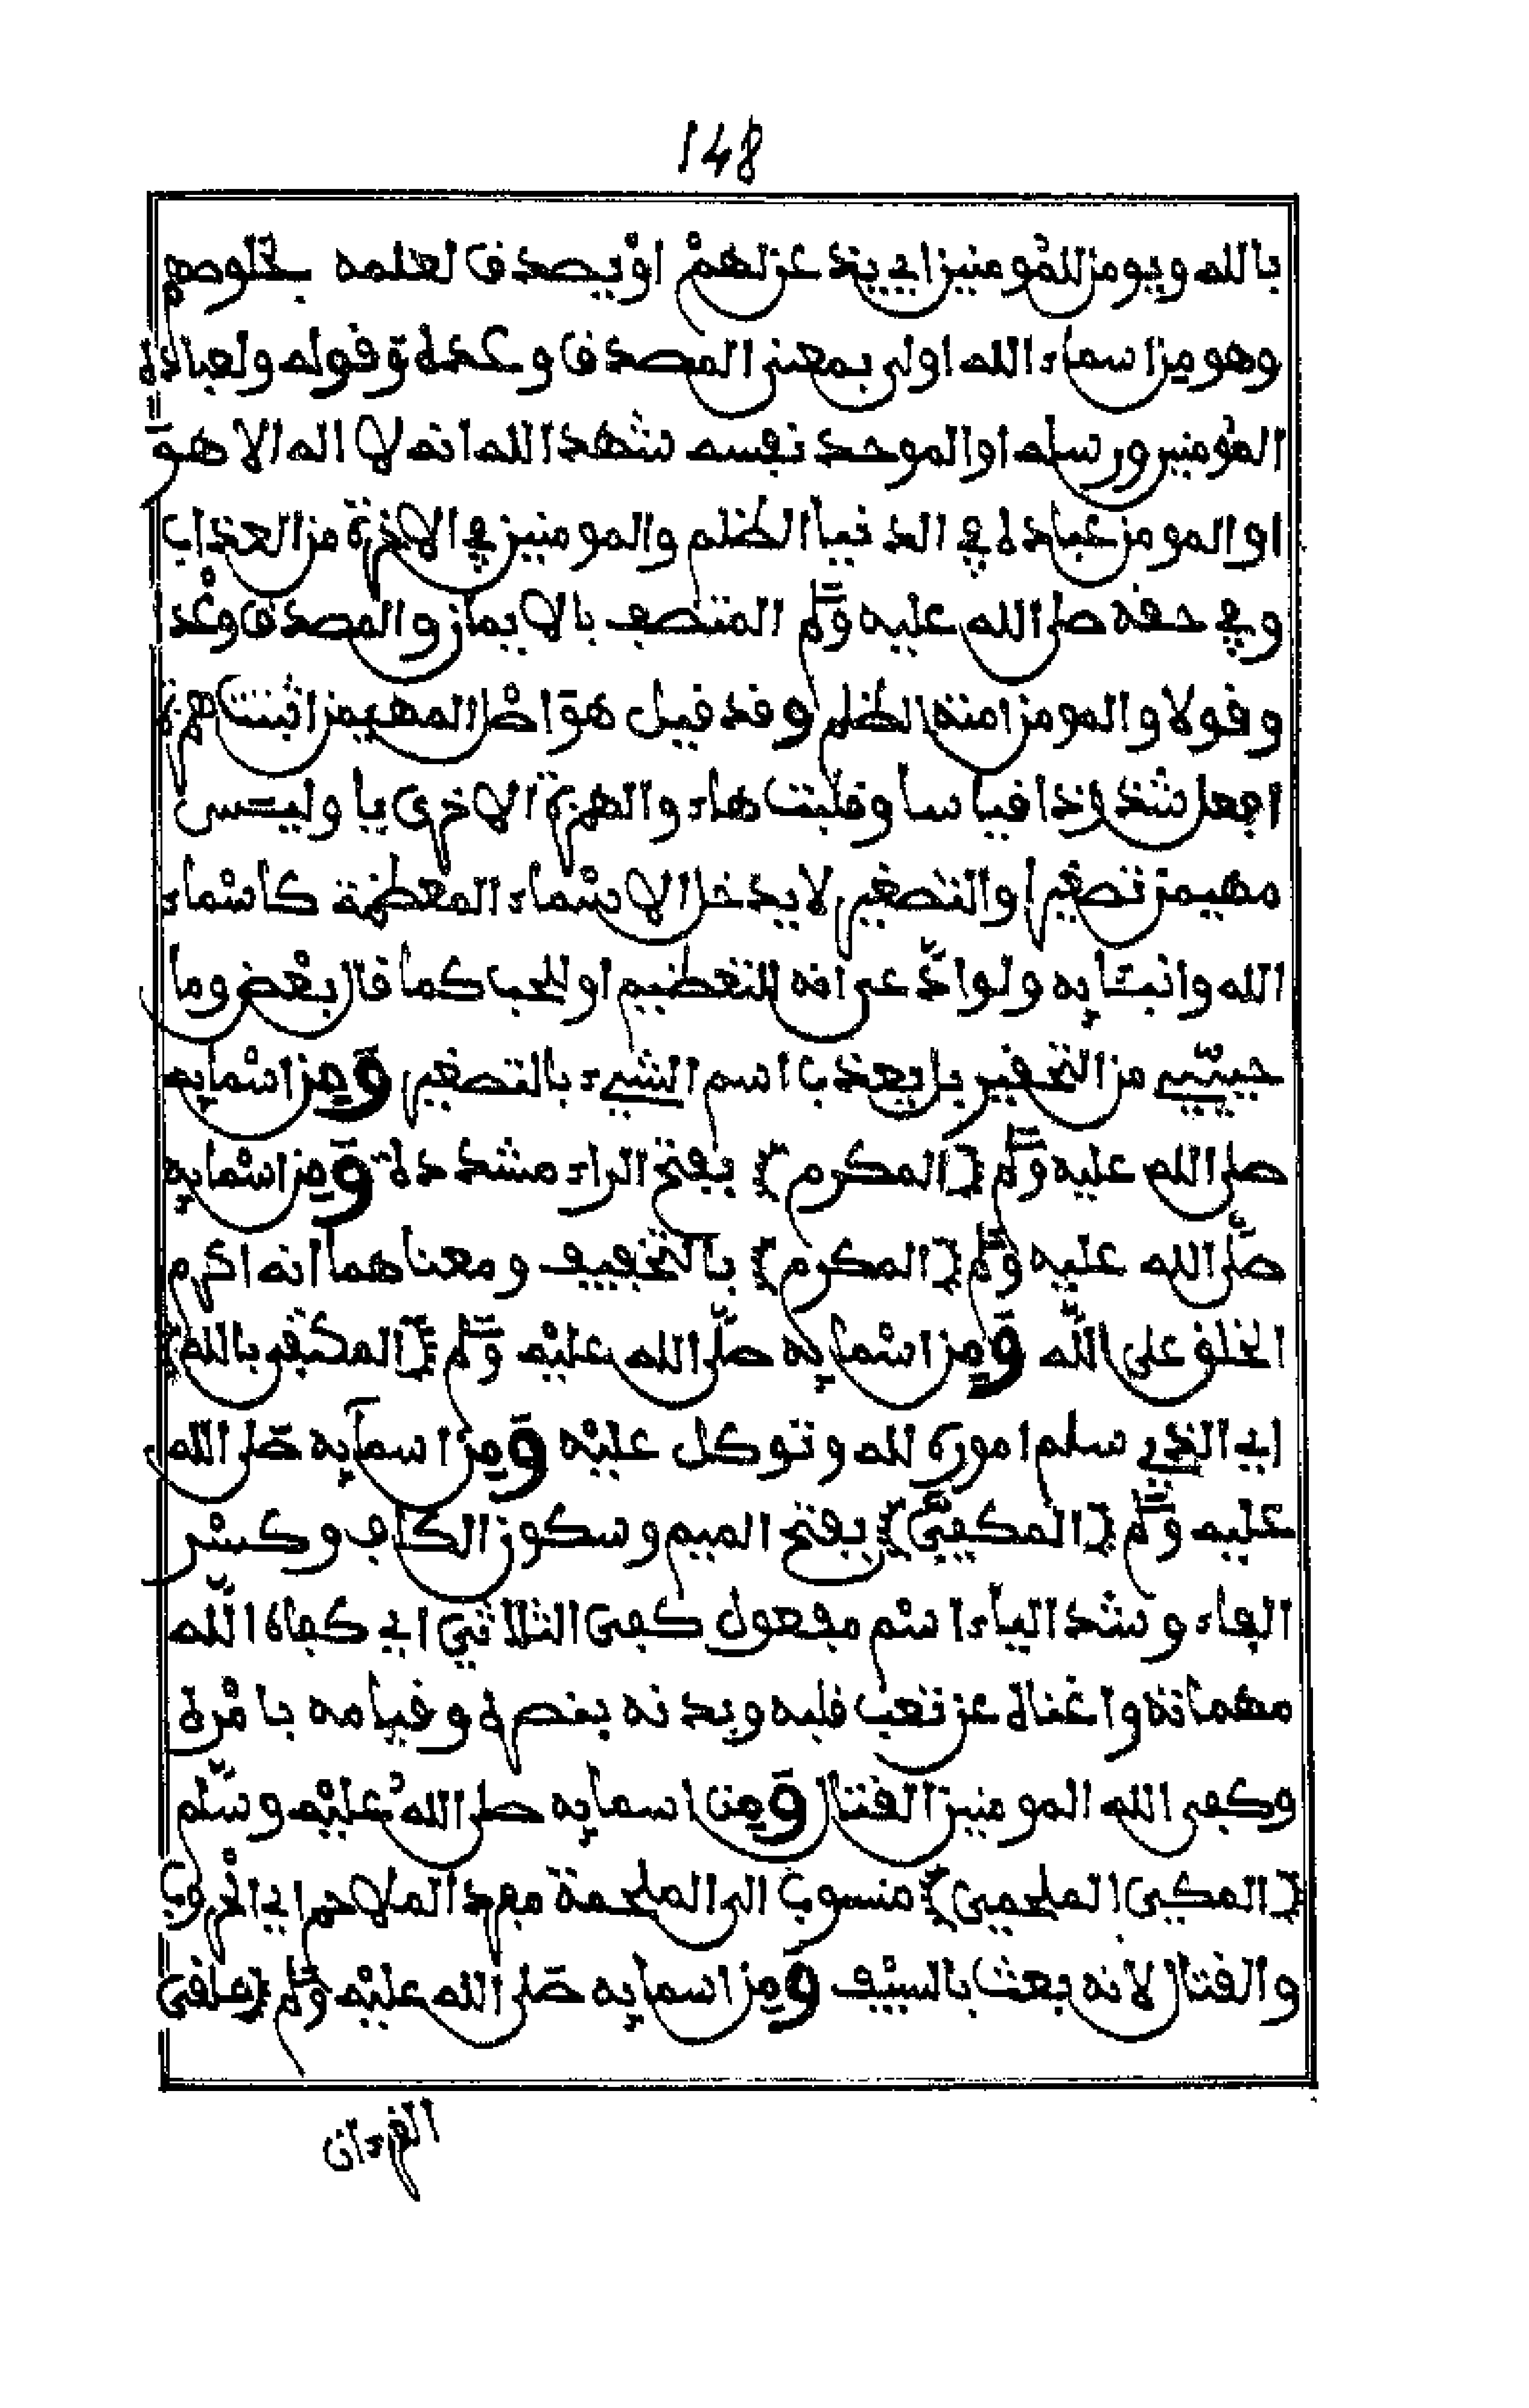 148
بالله ويومن للمومنين اي يذعن لهم او يصدق لعلمه بخلوصهم
وهو من اسماء الله اولى بمعنى المصدق وعده وقوله ولعباده
المومنين ورسله او الموحد نفسه شهد الله انه لا اله الا هو
او المومن عباده في الدنيا الظلم والمومنين في الاخرة من العذاب
وفي حقه صلى الله عليه وسلم المتصف بالايمان والمصدق وعدا
وقولا والمومن امته الظلم وقد قيل هو اصل المهيمن اثبتت همزة
افعل شذوذا قياسا وقلبت هاء والهمزة الاخرى يا وليس
مهيمن تصغيرا والتصغير لا يدخل الاسماء المعظمة كاسماء
الله وانبيايه ولو ادعى انه للتعظيم او للحب كما قال بعض وما
حبيبي من التحقير بل يعذب اسم الشيء بالتصغير ومن اسمايه
صلى الله عليه وسلم {المكرم} بفتح الراء مشددة ومن اسمايه
صلى الله عليه وسلم {المكرم} بالتخفيف ومعناهما انه اكرم
الخلق على الله ومن اسمايه صلى الله عليه وسلم {المكتفي بالله}
اي الذي سلم اموره لله وتوكل عليه ومن اسمايه صلى الله
عليه وسلم {المكفي} بفتح الميم وسكون الكاف وكسر
الفاء وشد الياء اسم مفعول كفى الثلاثي اي كفاه الله
مهماته واغناه عن تعب قلبه وبدنه بنصره وقيامه بامره
وكفى الله المومنين القتال ومن اسمايه صلى الله عليه وسلم
{المكي الملحمي} منسوب الى الملحمة مفرد الملاحم اي الحروب
والقتال لانه بعث بالسيف ومن اسمايه صلى الله عليه وسلم {ملقى
القرءان